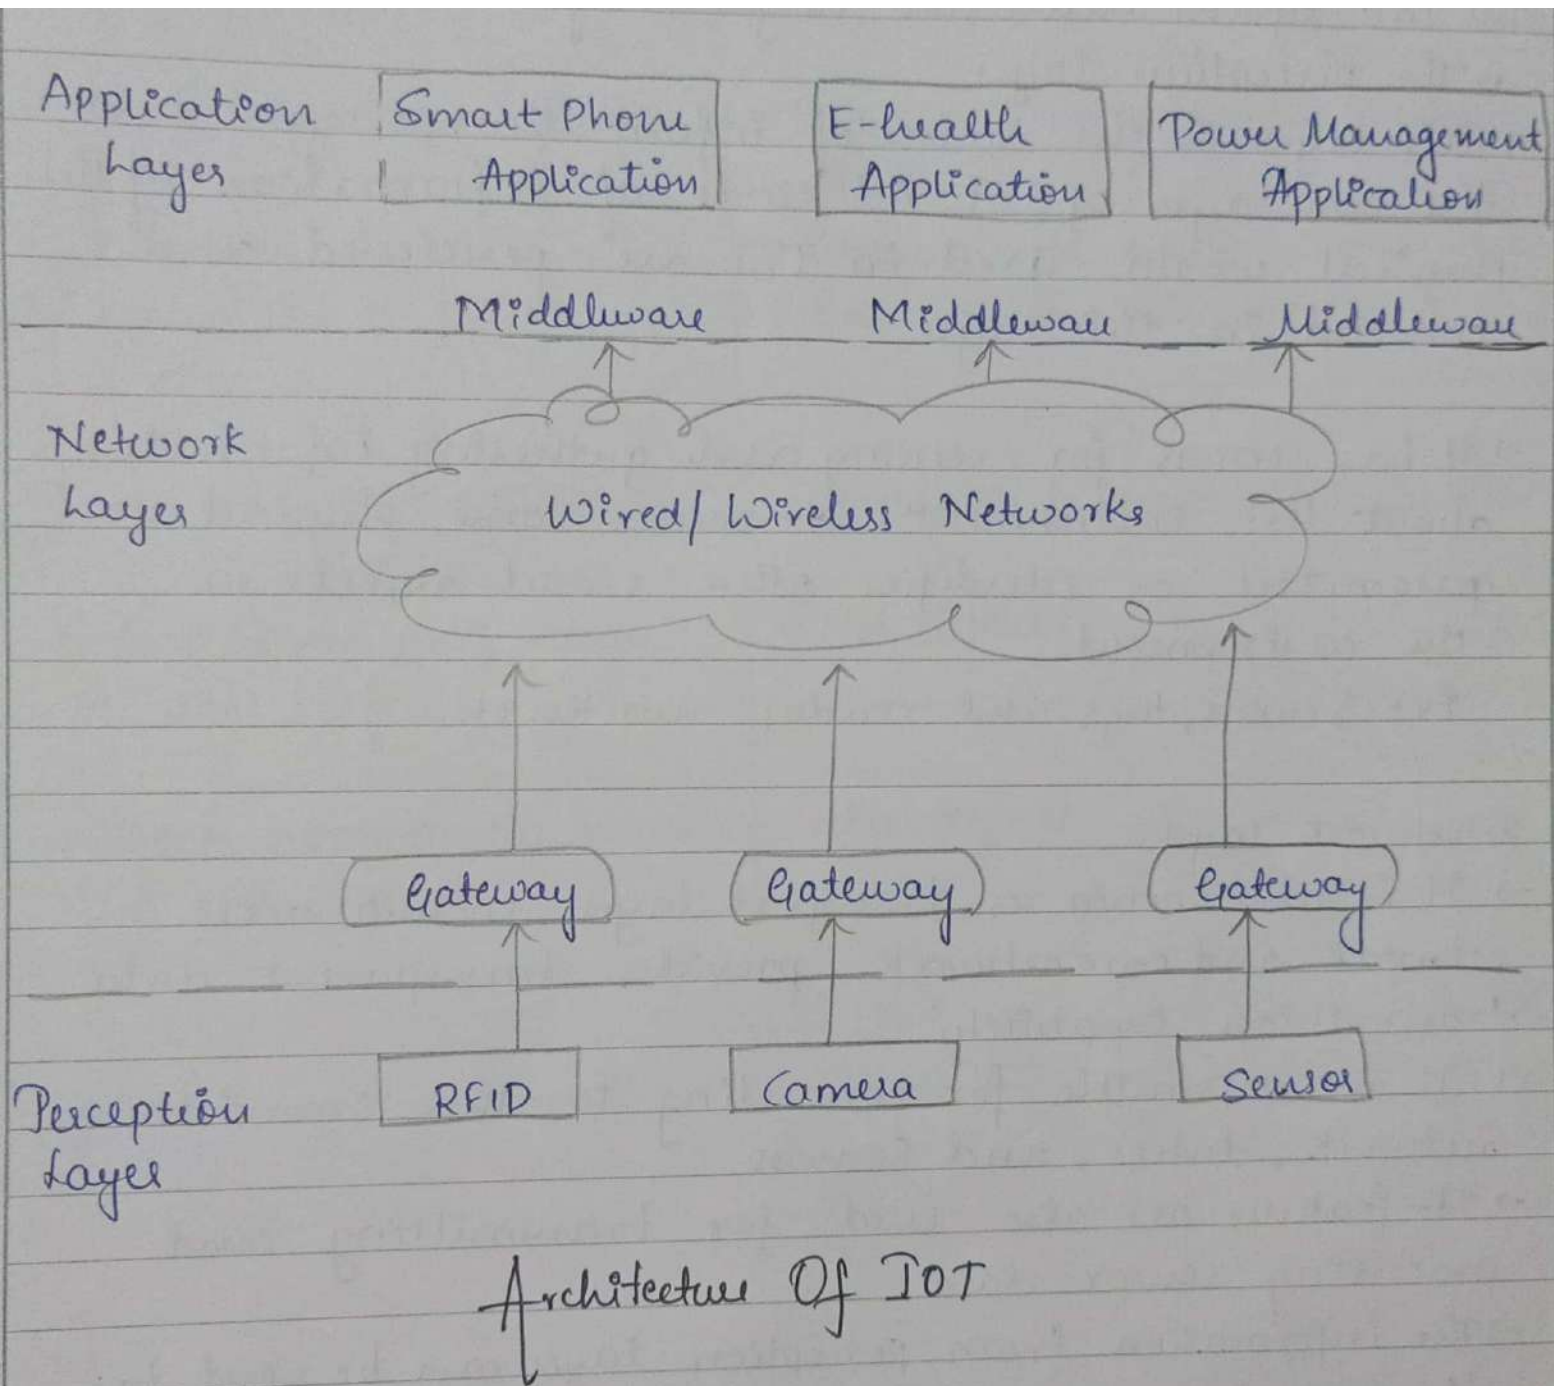 Application Layer
Smart Phone Application
E-health Application
Power Management Application
Middleware
Middleware
Middleware
Network Layer
Wired/ Wireless Networks
Gateway
Gateway
Gateway
Perception Layer
RFID
Camera
Sensor
Architecture Of IOT